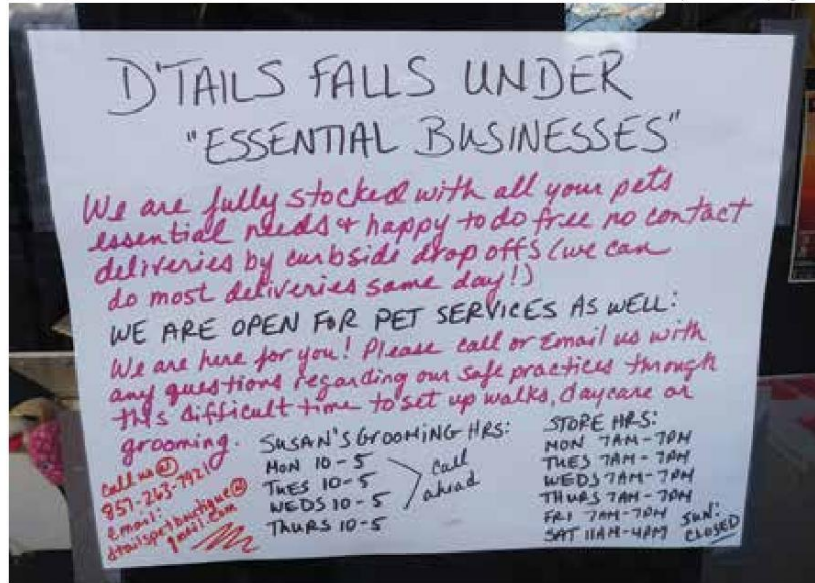 D'TAILS FALLS UNDER
"ESSENTIAL BUSINESSES"
We are fully stocked with all your pets
essential needs & happy to do free no contact
deliveries by curbside drop offs (we can
do most deliveries same day!)
WE ARE OPEN FOR PET SERVICES AS WELL:
We are here for you! Please call or Email us with
any questions regarding our safe practices through
this difficult time to set up walks, daycare or
grooming.
SUSAN'S GROOMING HRS:
MON 10-5
TUES 10-5
WEDS 10-5
THURS 10-5
call
ahead
STORE HRS:
MON 7AM-7PM
TUES 7AM-7PM
WEDS 7AM-7PM
THURS 7AM-7PM
FRI 7AM-7PM
SAT 11AM-4PM
SUN:
CLOSED
call us @
857-263-7921
email:
dtailspetboutique@
gmail.com